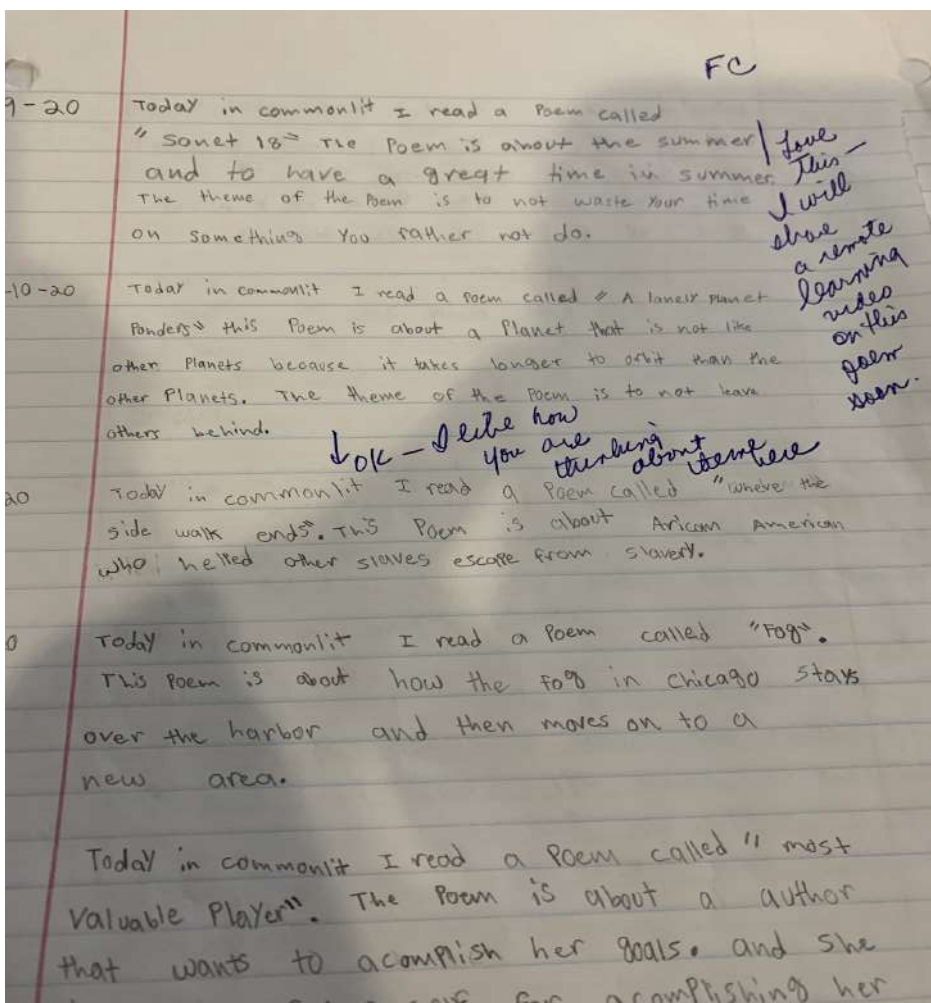 FC
9-20 Today in commonlit I read a Poem called
"Sonet 18" The Poem is about the summer
and to have a great time in summer.
The theme of the Poem is to not waste Your time
on something You rather not do.
Love
This —
I will
share
a remote
learning
video
on this
poem
soon.
-10-20 Today in commonlit I read a Poem called "A lonely Planet
Ponders" this Poem is about a Planet that is not like
other Planets because it takes longer to orbit than the
other Planets. The theme of the Poem is to not leave
others behind.
↓ OK — I like how
you are
thinking
about
theme here
20 Today in commonlit I read a Poem called "where the
side walk ends". This Poem is about Arican American
who helped other slaves escape from slavery.
0 Today in commonlit I read a Poem called "Fog".
This Poem is about how the fog in Chicago stays
over the harbor and then moves on to a
new area.
Today in commonlit I read a Poem called "most
valuable Player". The Poem is about a author
that wants to acomplish her goals. and she
for acomplishing her